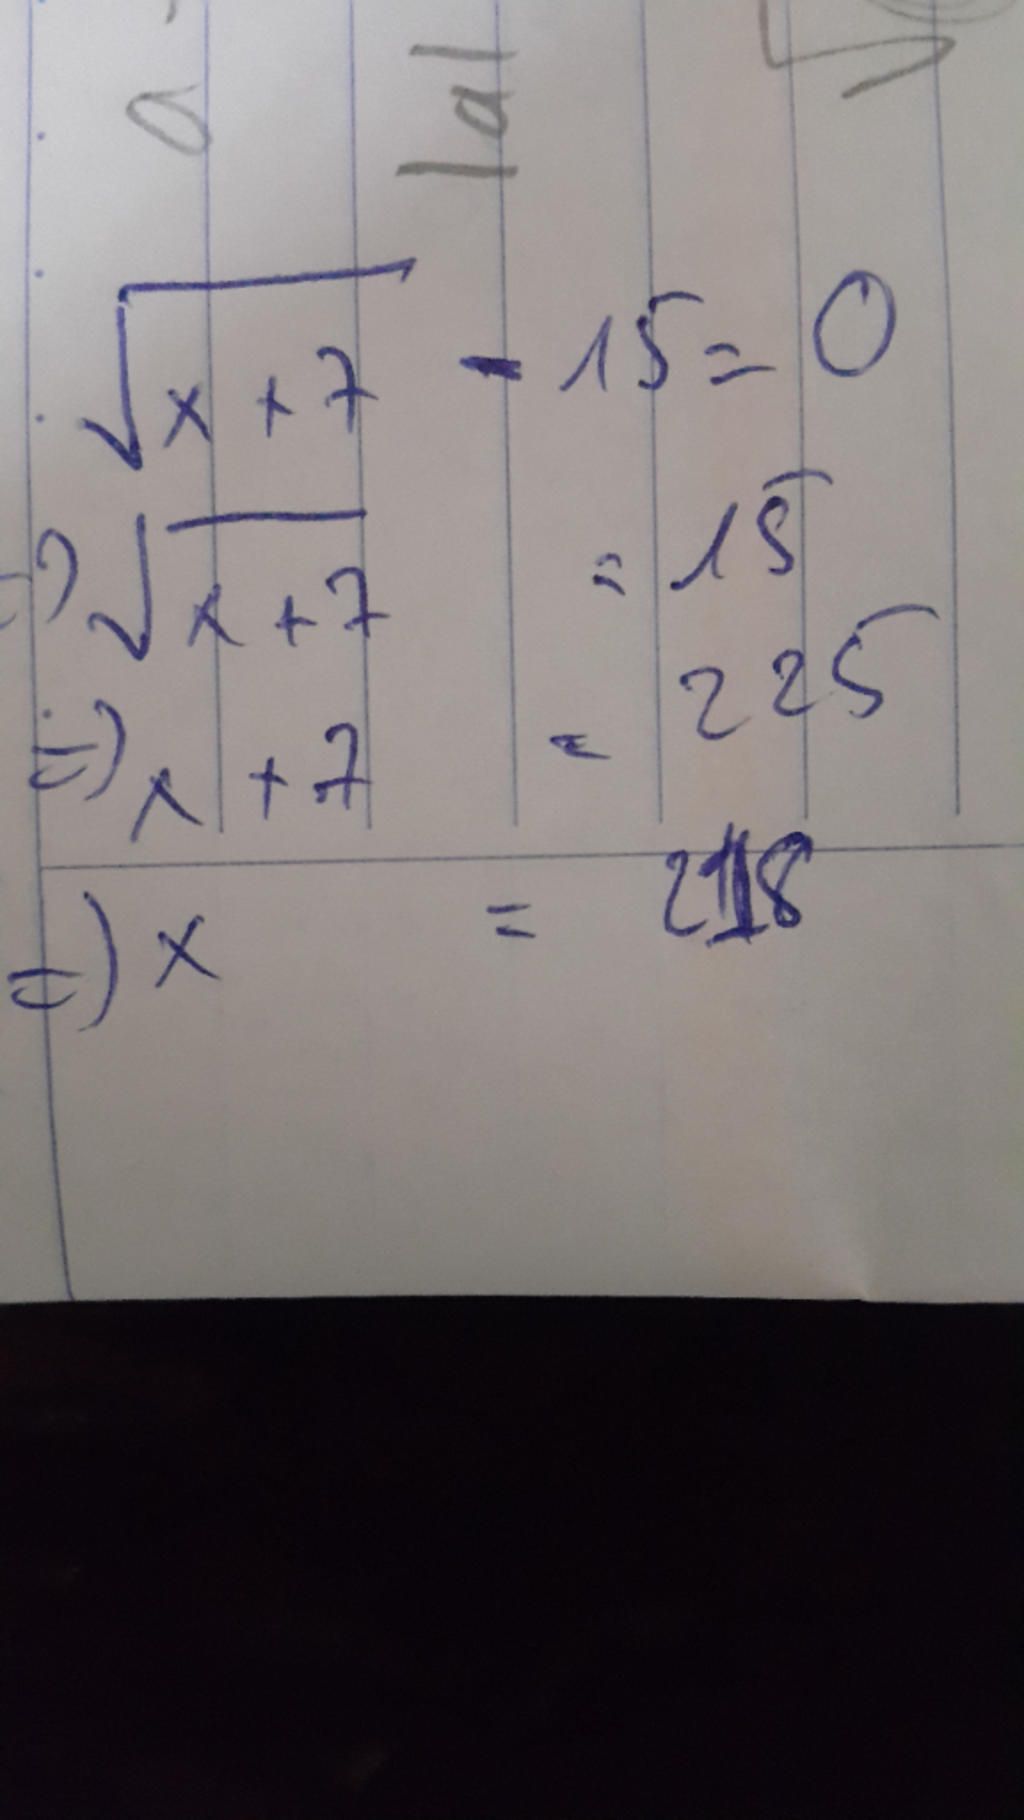 a |a|
√x + 7 - 15 = 0
=) √x + 7 = 15
=) x + 7 = 225
=) x = 218